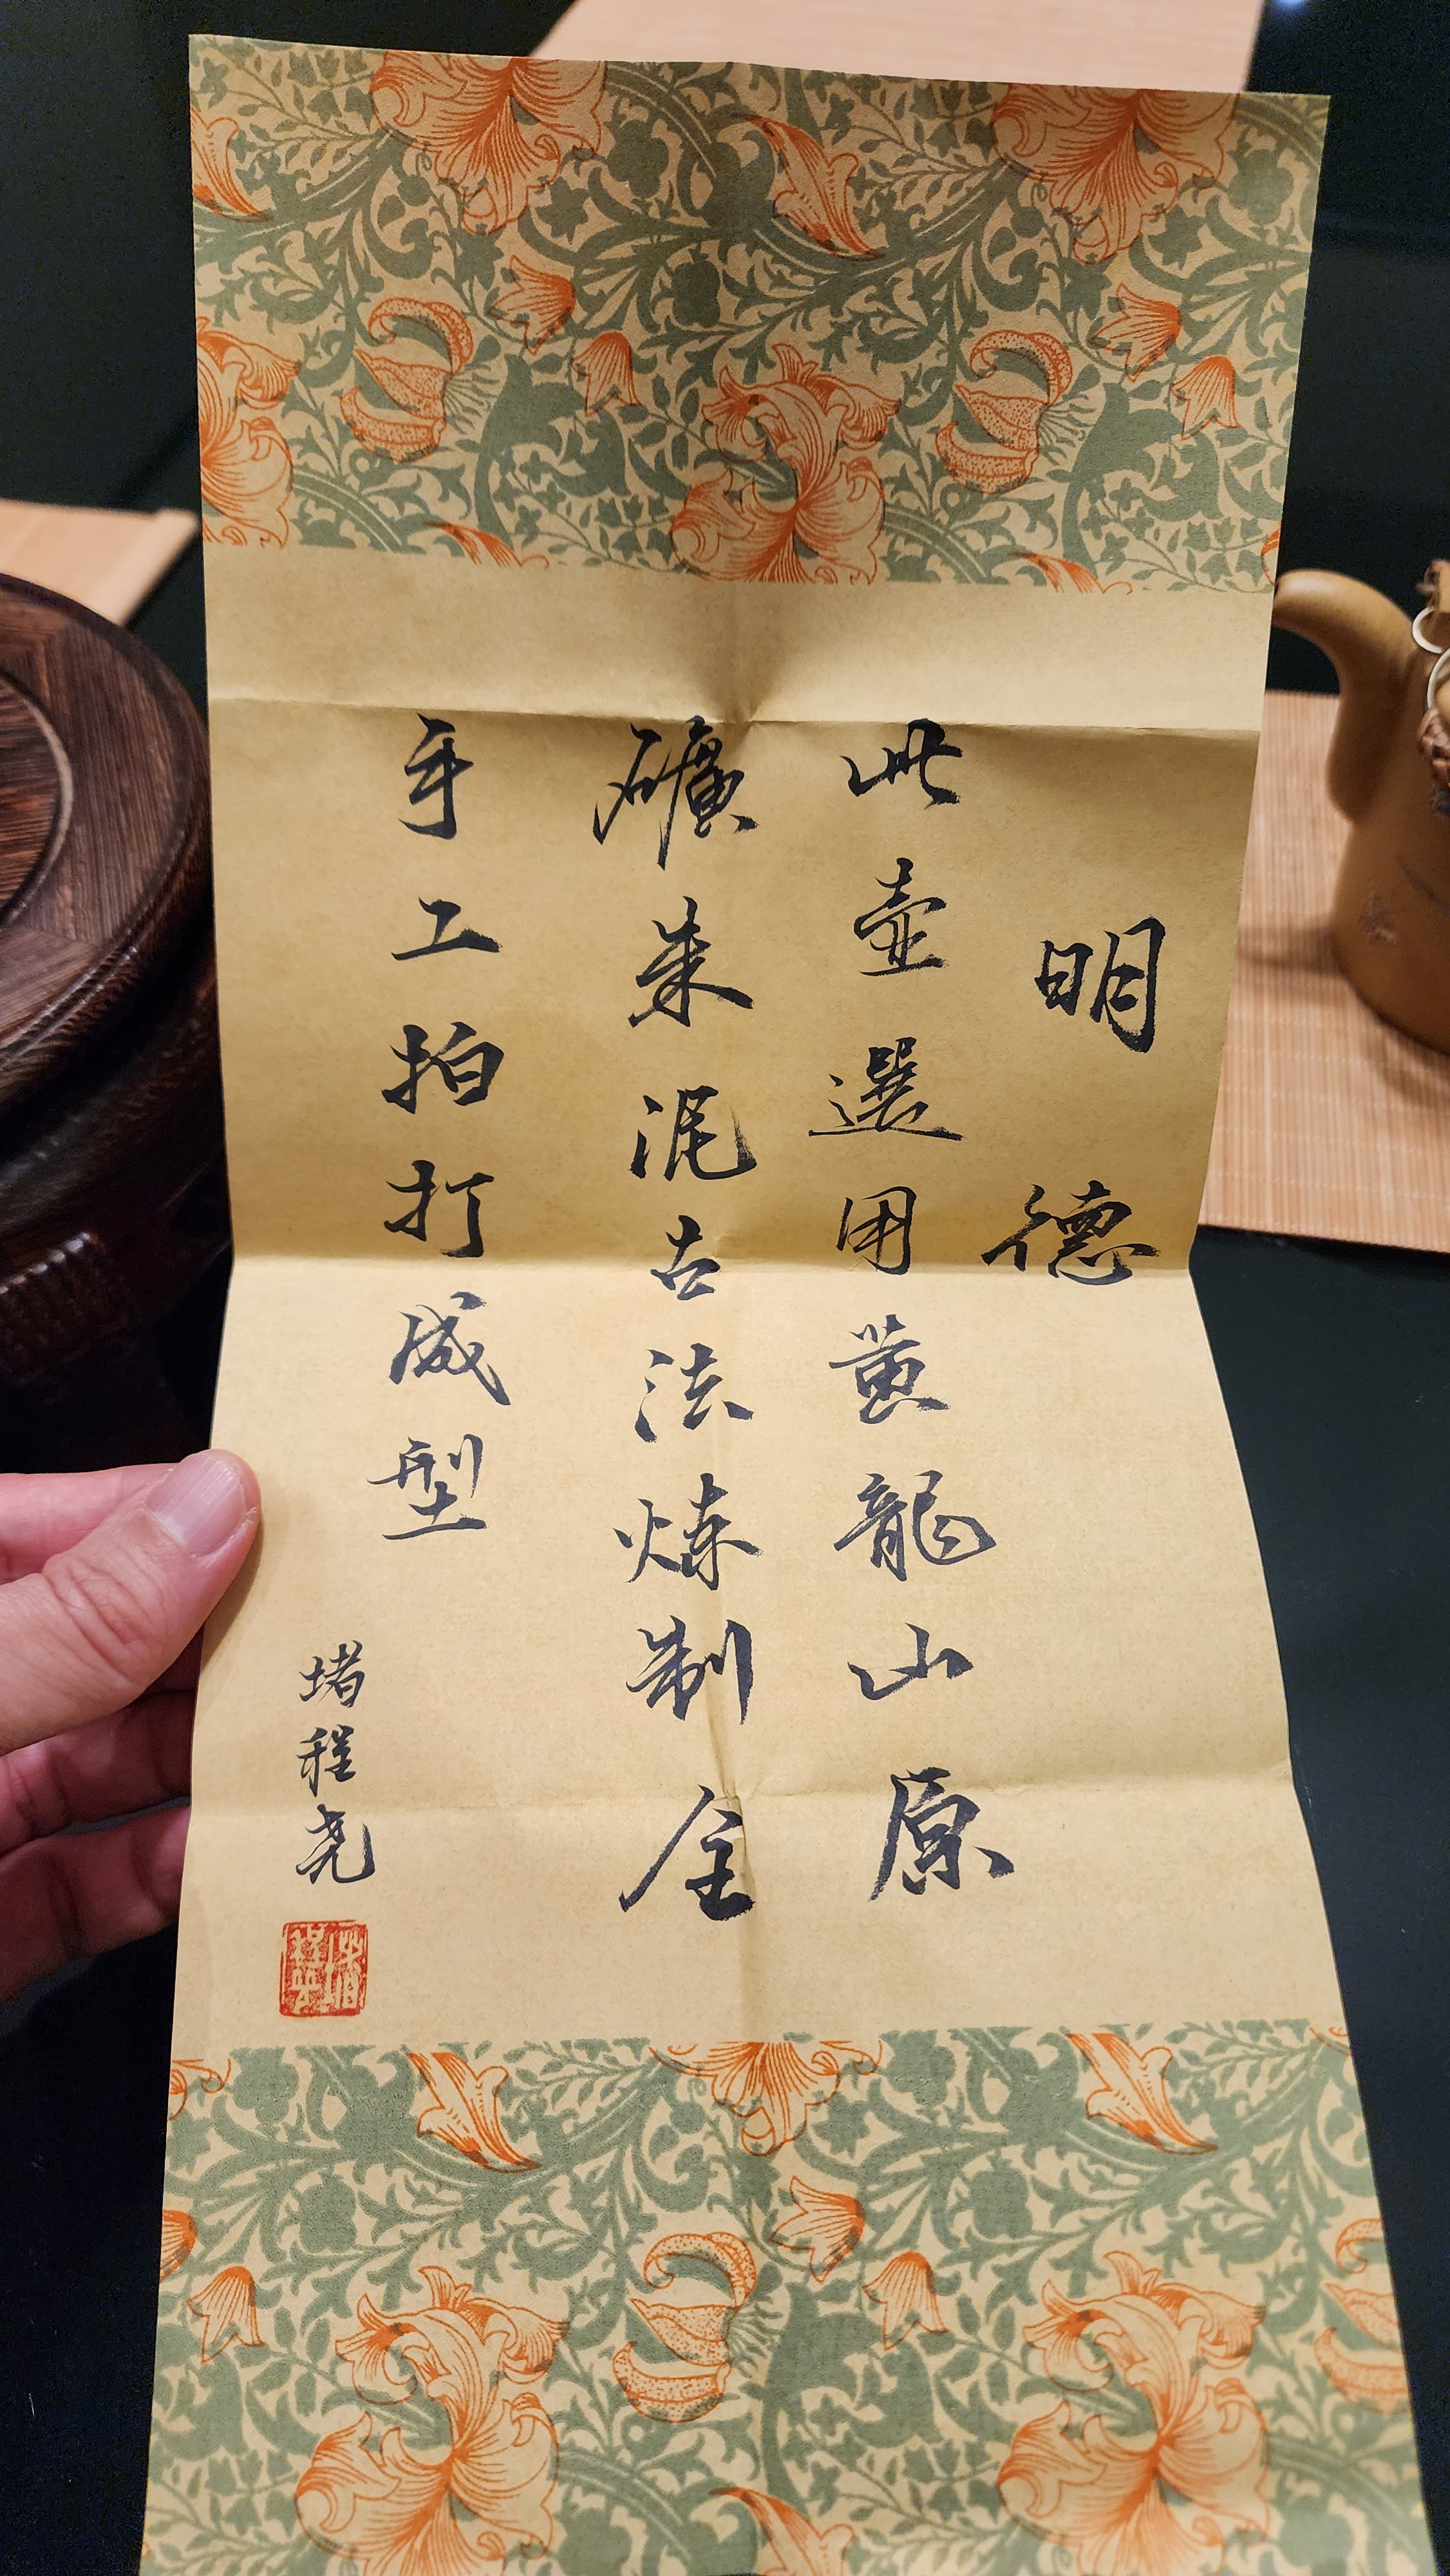 明德
此壺選用黄龍山原
礦朱泥古法炼制全
手工拍打成型
堵程尧